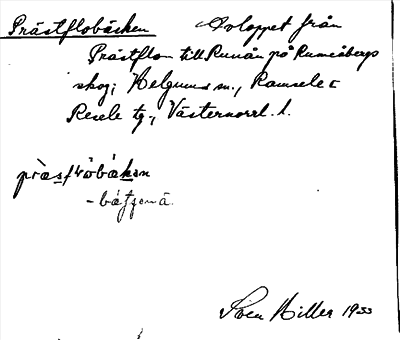 Prästflobäcken Avloppet från
Prästflon till Runån på Rumsåbergs
skog; Helgums sn., Ramsele o
Resele tg., Västernorrl. l.
Sven Hiller 1933